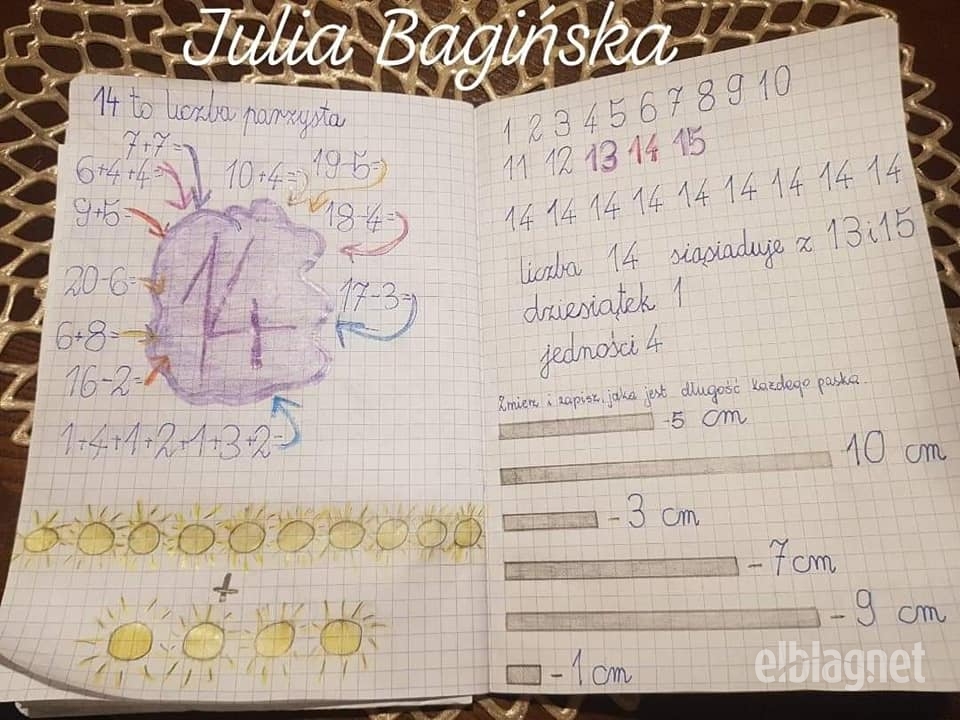 Julia Bagińska
14 to liczba parzysta
7+7=
6+4+4=
10+4=
19-5=
9+5=
18-4=
20-6=
14
17-3=
6+8=
16-2=
1+4+1+2+1+3+2=
+
1 2 3 4 5 6 7 8 9 10
11 12 13 14 15
14 14 14 14 14 14 14 14 14
liczba 14 siąsiaduje z 13 i 15
dziesiątek 1
jedności 4
Zmierz i zapisz, jaka jest długość każdego paska.
-5 cm
10 cm
- 3 cm
- 7 cm
- 9 cm
- 1 cm
elbląg.net